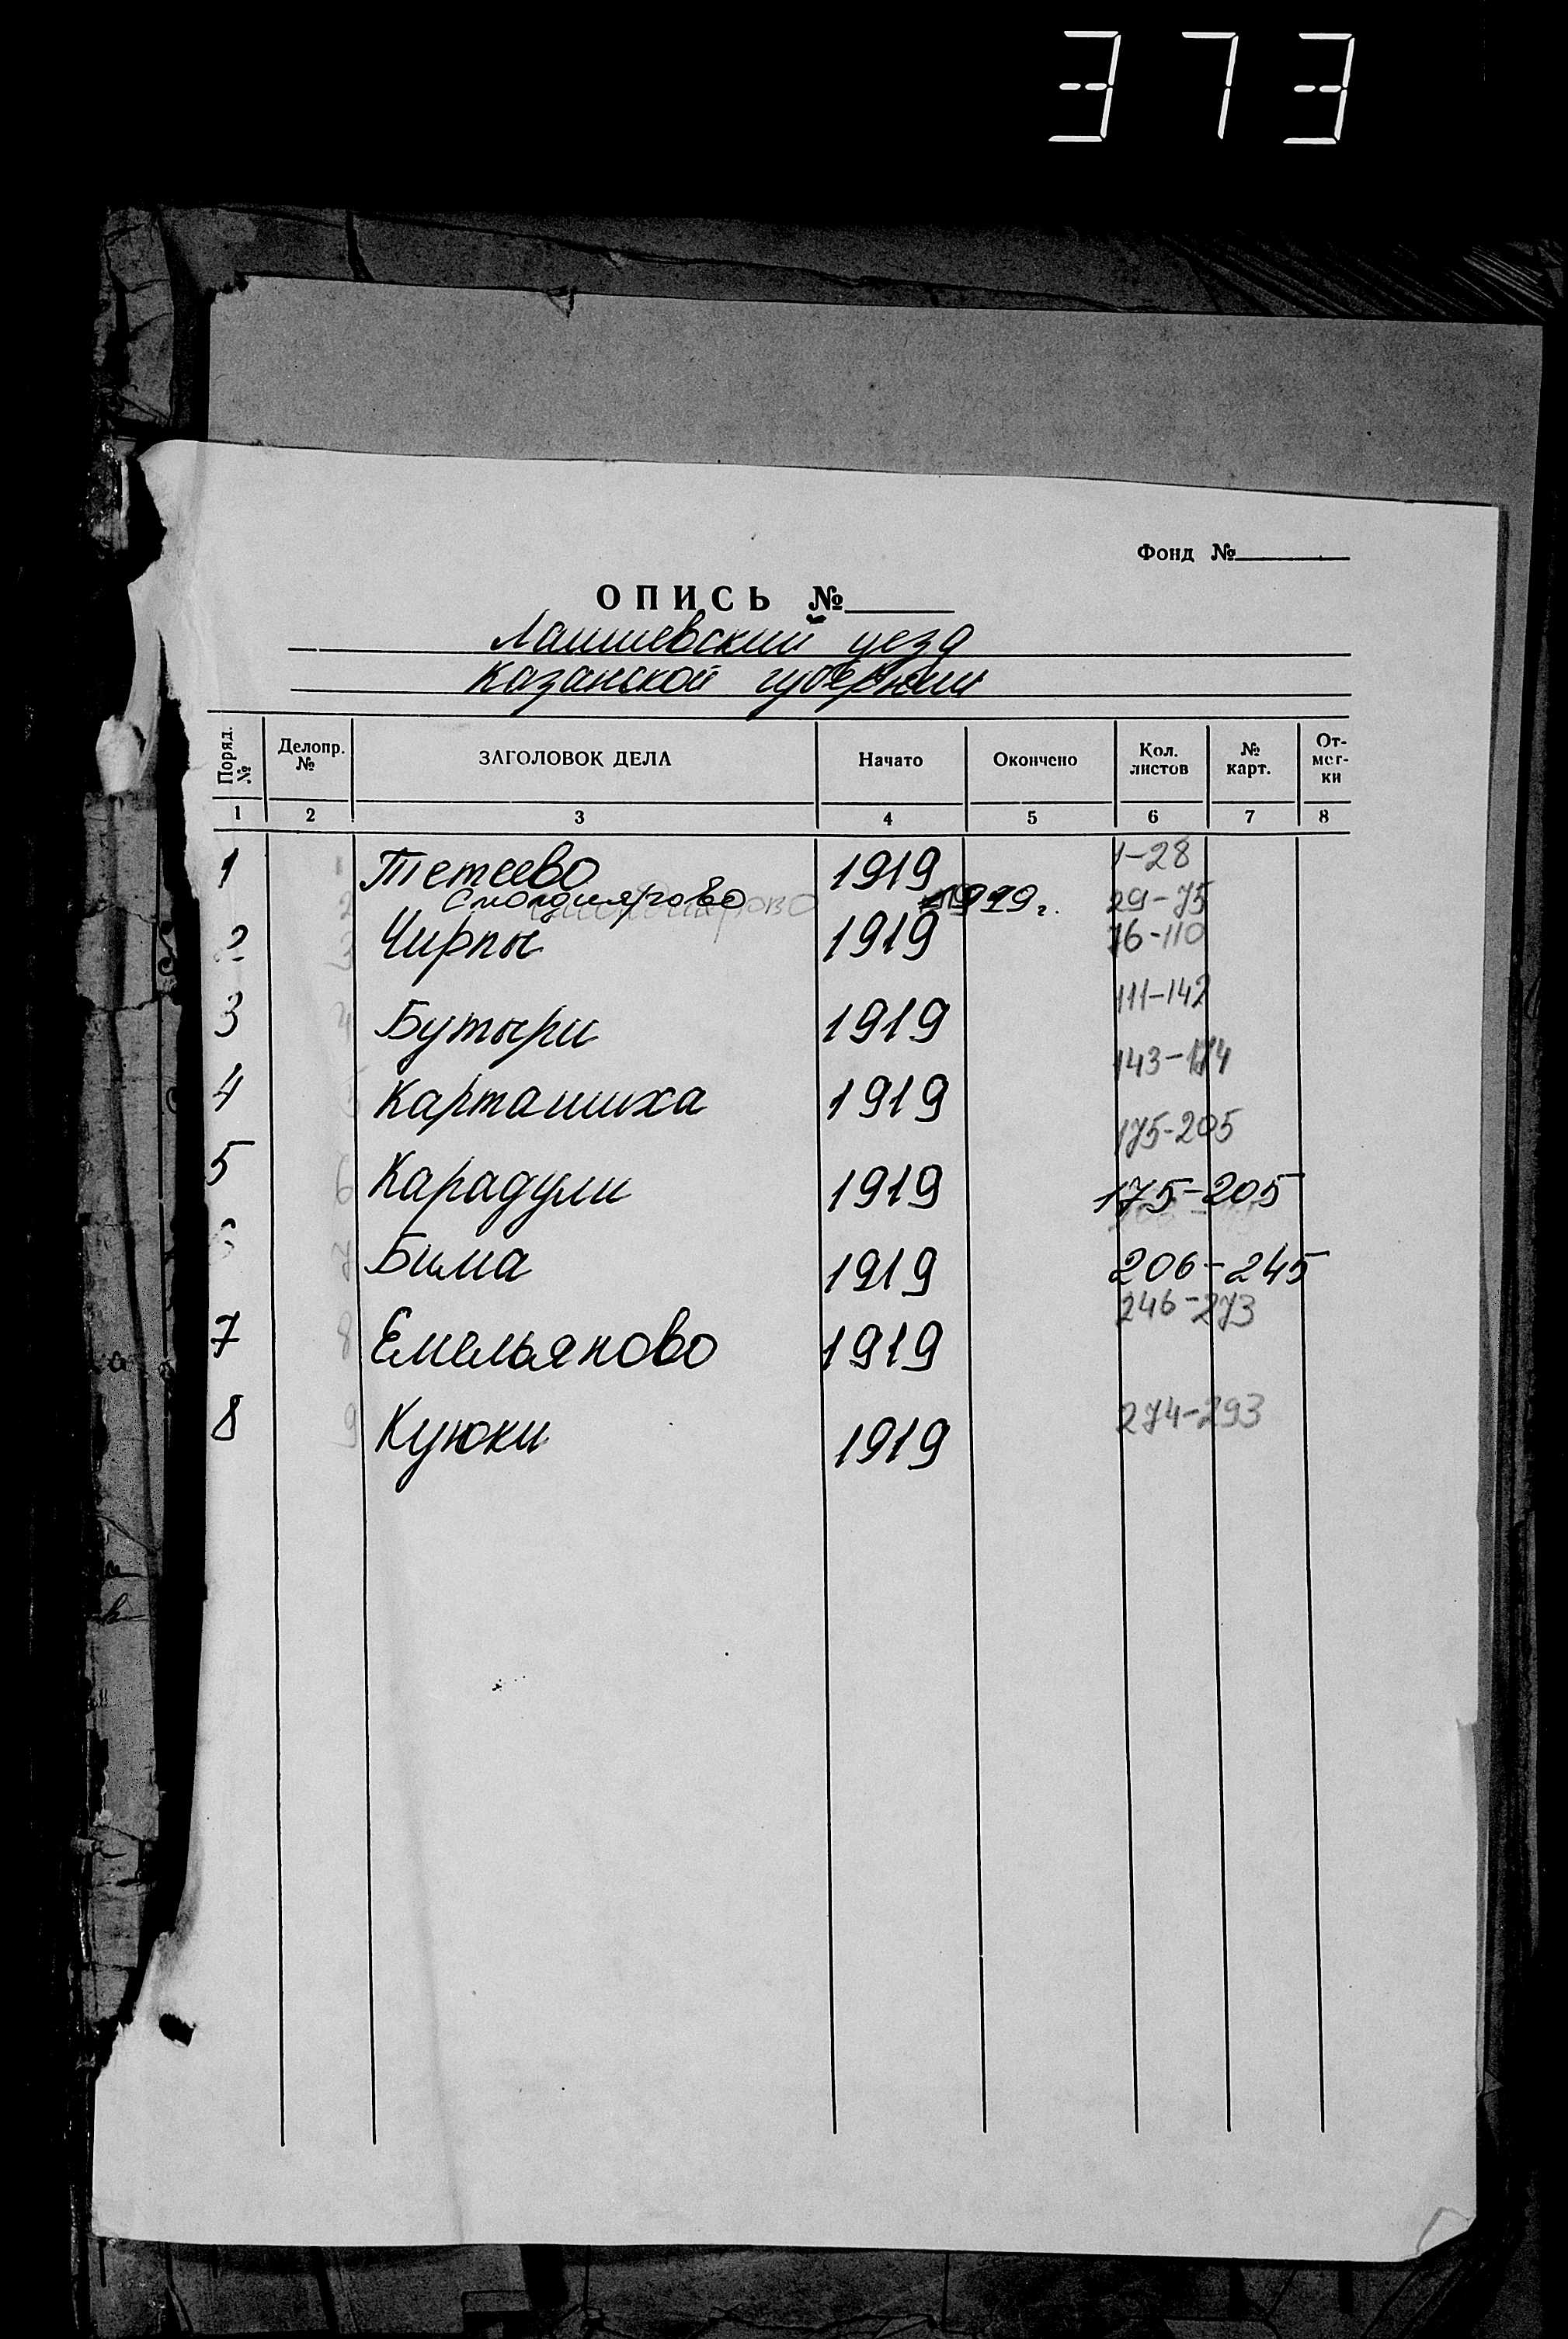 373
Фонд №
ОПИСЬ №
Лаишевский уезд
Казанской губернии
Поряд. № Делопр. № ЗАГОЛОВОК ДЕЛА Начато Окончено Кол. листов № карт. Отметки
1 2 3 4 5 6 7 8
1 1 Тетеево 1919 1-28
2 Смолдиярово 1919 г. 29-75
2 3 Чирпы 1919 76-110
3 4 Бутыри 1919 111-142
4 5 Карташиха 1919 143-174
175-205
5 6 Карадули 1919 175-205
6 7 Бима 1919 206-245
7 8 Емельяново 1919 246-273
8 9 Куюки 1919 274-293